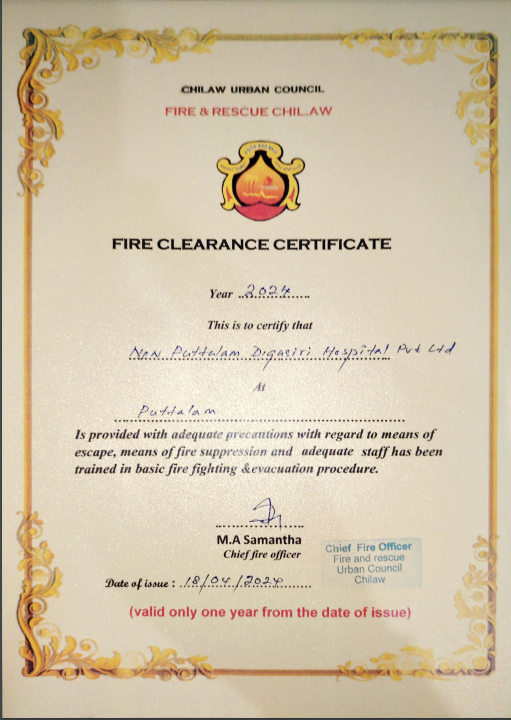 CHILAW URBAN COUNCIL
FIRE & RESCUE CHIL.AW
FIRE CLEARANCE CERTIFICATE
Year ..2024......
This is to certify that
New Puttalam Digasiri Hospital Pvt Ltd
At
Puttalam
Is provided with adequate precautions with regard to means of
escape, means of fire suppression and adequate staff has been
trained in basic fire fighting &evacuation procedure.
M.A Samantha
Chief fire officer
Chief Fire Officer
Fire and rescue
Urban Council
Chilaw
Date of issue : 18/04/2024
(valid only one year from the date of issue)